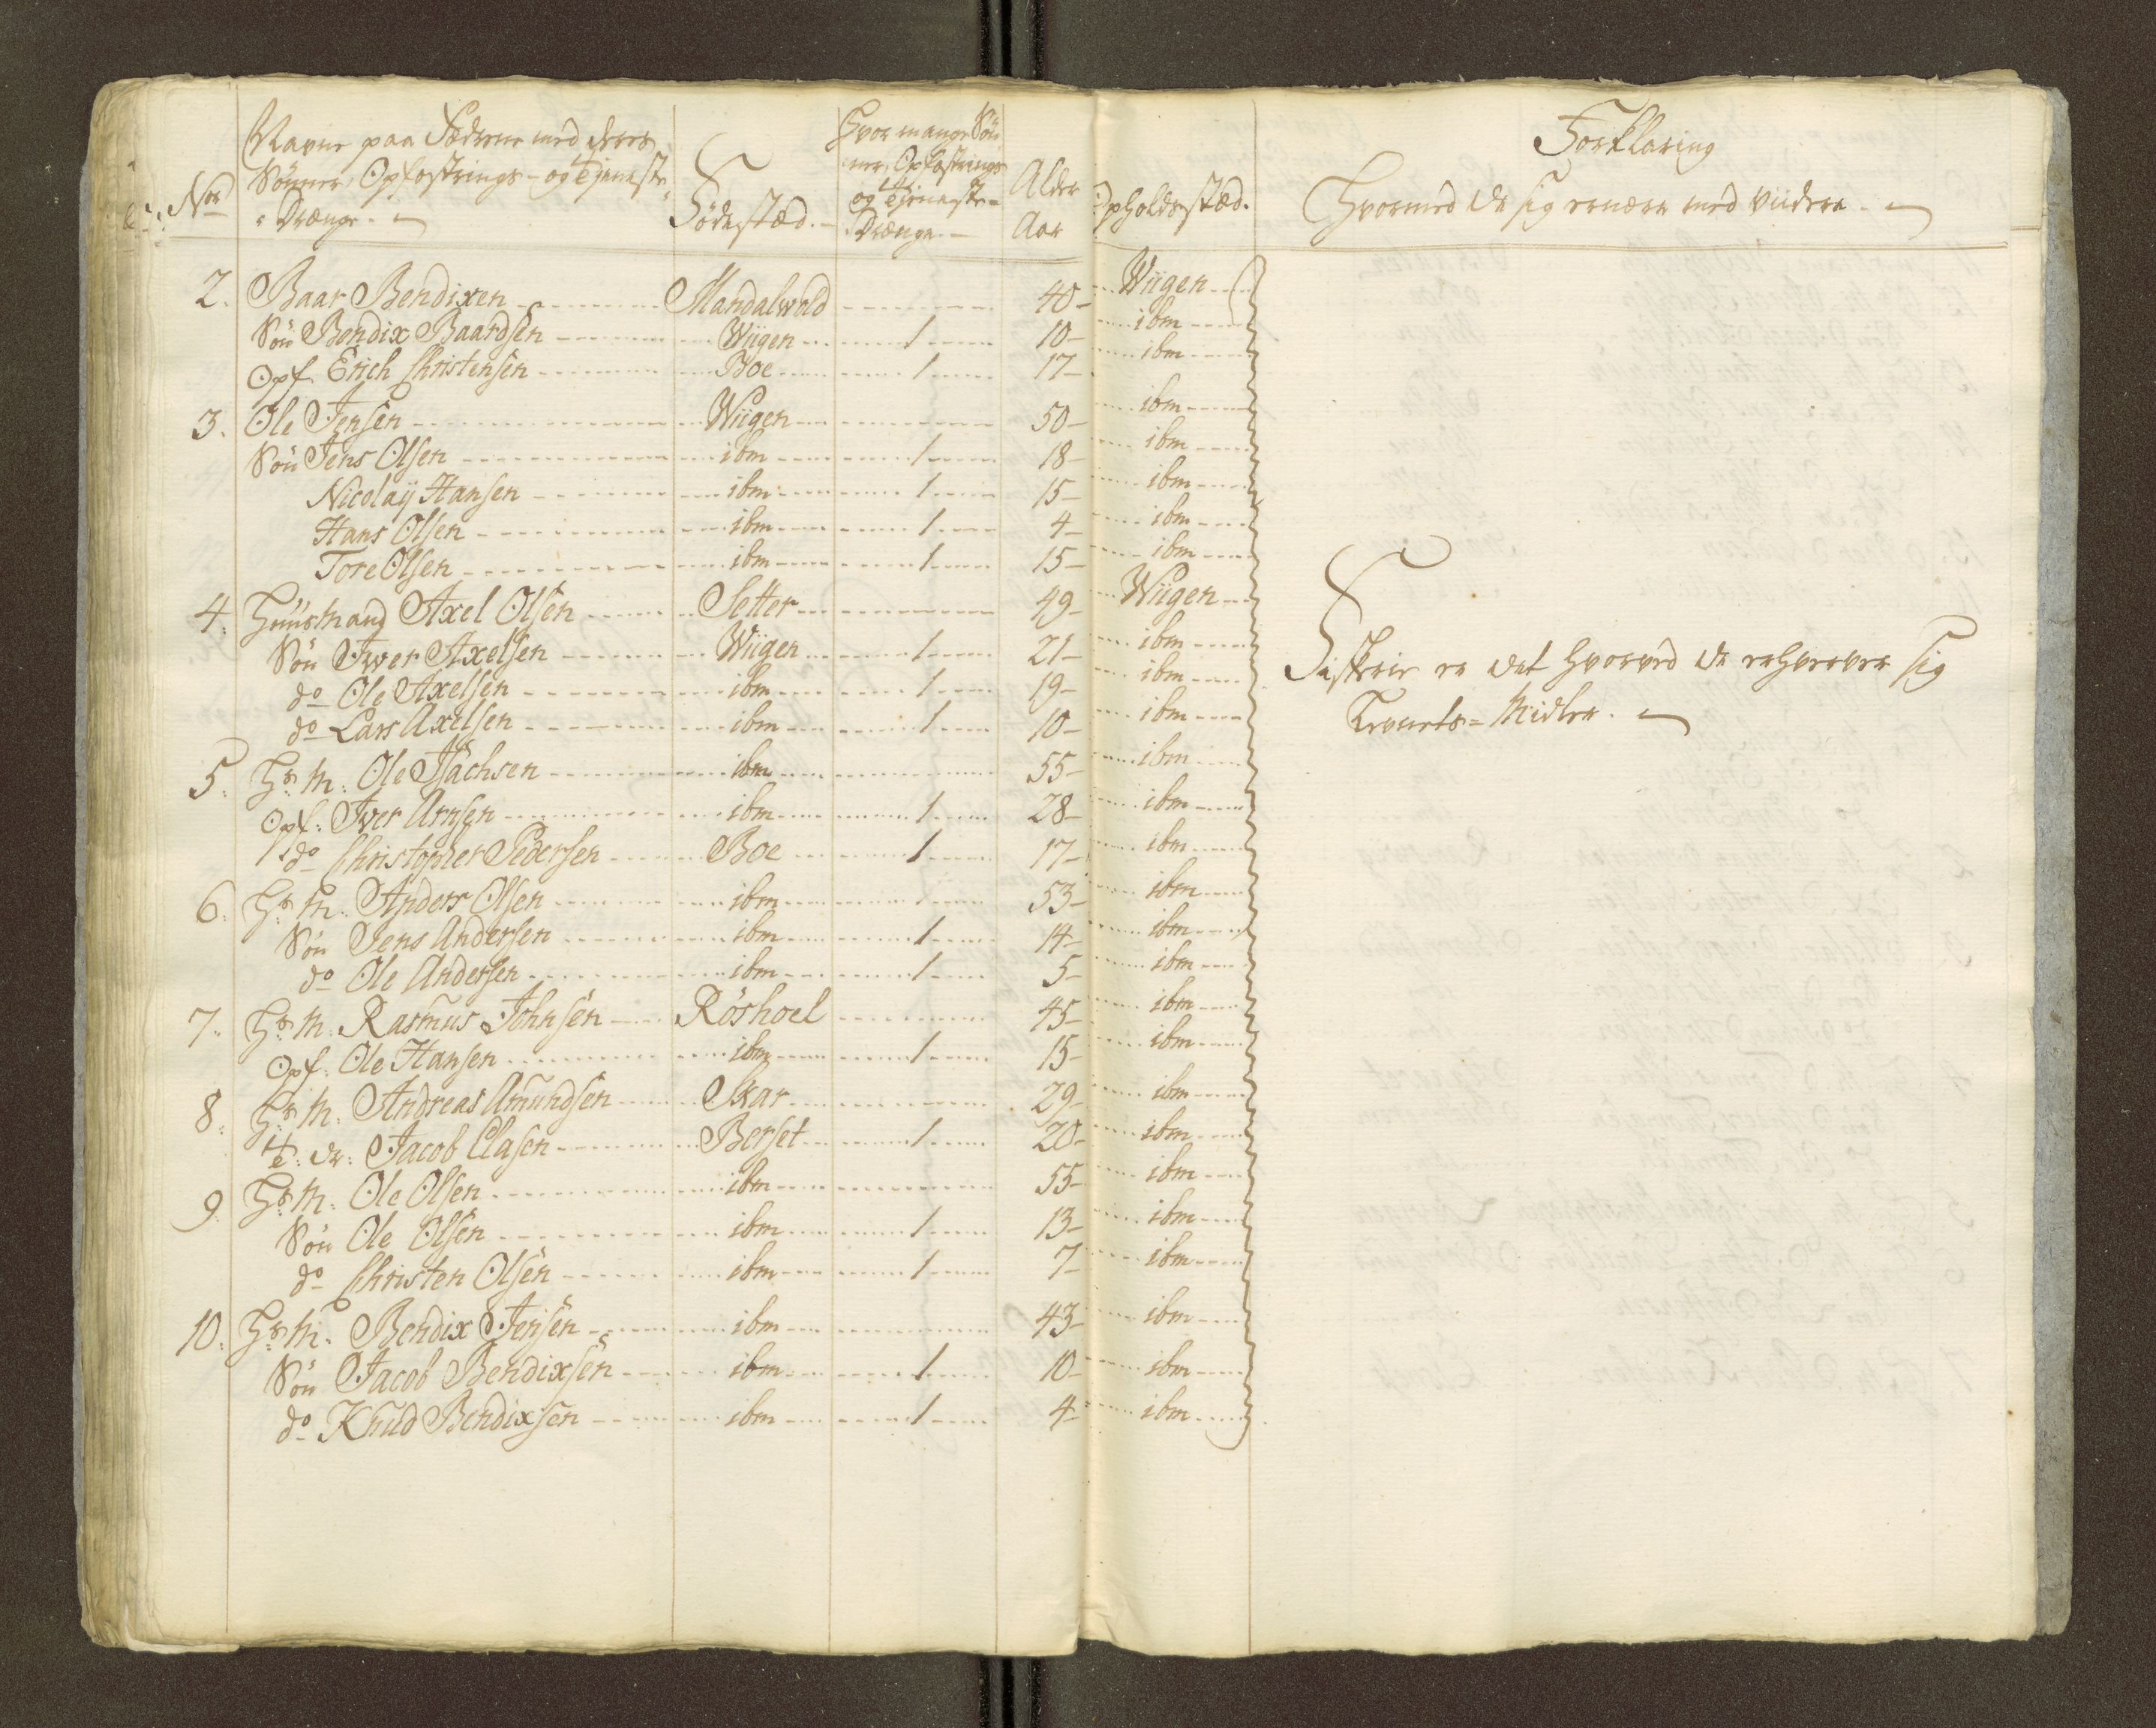 Nor
Navne paa Fædrene med deres
Sönner, Opfostrings- og Tjeneste-
Drænge.
Födestæd.
Hvor mange Sön
ner, Opfostrings
og Tjeneste-
Drænge.
Alder
Aar
Opholdsstæd.
Forklaring
Hvormed de sig ernære med viidere.
2. Baar Bendixen Mandalwold 40 Wiigen
Sön Bendix Baardsen Wiigen 1 10 ibm
Opf. Erich Christensen Boe 1 17 ibm
3. Ole Jensen Wiigen 50 ibm
Sön Jens Olsen ibm 1 18 ibm
Nicolaÿ Hansen ibm 1 15 ibm
Hans Olsen ibm 1 4 ibm
Tore Olsen ibm 1 15 ibm
4. Huusmand Axel Olsen Setter 49 Wiigen
Sön Iwer Axelsen Wiigen 1 21 ibm
do Ole Axelsen ibm 1 19 ibm
do Lars Axelsen ibm 1 10 ibm
5. Hs: M: Ole Isachsen ibm 55 ibm
Opf: Iver Arnsen ibm 1 28 ibm
do Christopher Pedersen Boe 1 17 ibm
6. Hs: M: Anders Olsen ibm 53 ibm
Sön Jens Andersen ibm 1 14 ibm
do Ole Andersen ibm 1 5 ibm
7. Hs: M: Rasmus Johnsen Röshoel 45 ibm
Opf: Ole Hansen ibm 1 15 ibm
8. Hs: M: Andreas Amundsen Skar 29 ibm
Te: dr: Jacob Clasen Berset 1 20 ibm
9. Hs: M: Ole Olsen ibm 55 ibm
Sön Ole Olsen ibm 1 13 ibm
do Christen Olsen ibm 1 7 ibm
10. Hs: M: Bendix Jensen ibm 43 ibm
Sön Jacob Bendixsen ibm 1 10 ibm
do Knud Bendixsen ibm 1 4 ibm
Fiskerie er det hvorved de erhverver sig
Levnets-Midler.